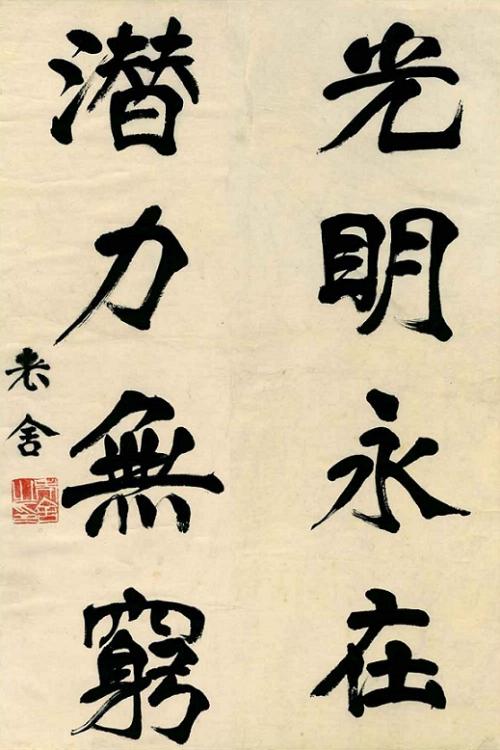 光明永在
潛力無窮
老舍